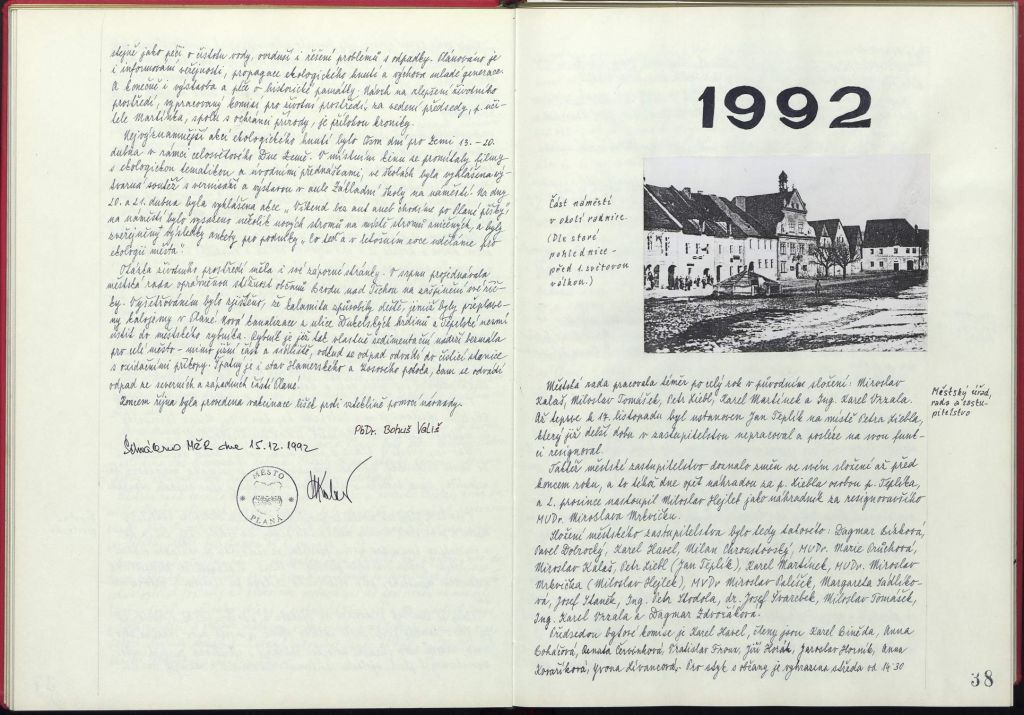 stejně jako péči o čistotu vody, ovzduší i řešení problémů s odpadky. Plánováno je
i informování veřejnosti, propagace ekologického hnutí a výchova mladé generace.
A konečně i výstavba a péče o historické památky. Návrh na zlepšení životního
prostředí, vypracovaný komisí pro životní prostředí, za vedení předsedy, p. uči-
tele Martínka, spolu s ochránci přírody, je přílohou kroniky.
Nejvýznamnější akcí ekologického hnutí bylo Osm dní pro Zemi 13.-20.
dubna v rámci celosvětového Dne Země. V místním kinu se promítaly filmy
s ekologickou tematikou a úvodními přednáškami, ve školách byla vyhlášena vý-
tvarná soutěž s vernisáží a výstavou v aule Základní školy na náměstí. Na dny
20. a 21. dubna byla vyhlášena akce „Víkend bez aut aneb chodíme po Plané pěšky",
na náměstí bylo vysazeno několik nových stromů na místě stromů zničených, a byly
zveřejněny výsledky ankety pro podniky „Co teď a v letošním roce uděláme pro
ekologii města".
Otázka životního prostředí měla i své záporné stránky. V srpnu projednávala
městská rada oprávněnou stížnost občanů Brodu nad Tichou na znečištění své říč-
ky. Vyšetřováním bylo zjištěno, že kalamitu způsobily deště, jimiž byly přeplave-
ny kalojemy v Plané. Nová kanalizace z ulice Dukelských hrdinů a Téplovy nesmí
ústit do městského rybníka. Rybník je již tak vlastně sedimentační nádrží bezmála
pro celé město - mimo jižní část a sídliště, odkud se odpad odvádí do čisticí stanice
s oxidačními příkopy. Špatný je i stav Hamerského a Kosového potoka, kam se odvádí
odpad ze severních a západních částí Plané.
Koncem října byla provedena vakcinace lišek proti vzteklině pomocí návnady.
PhDr. Bohuš Vališ
Schváleno MěR dne 15.12.1992
MĚSTO
PLANÁ
1992
Část náměstí
v okolí radnice.
(Dle staré
pohlednice -
před 1. světovou
válkou.)
Městská rada pracovala téměř po celý rok v původním složení: Miroslav
Kalaš, Miloslav Tomášek, Petr Liebl, Karel Martínek a Ing. Karel Vrzala.
Až teprve k 17. listopadu byl ustanoven Jan Téplík na místě Petra Liebla,
který již delší dobu v zastupitelstvu nepracoval a posléze na svou funk-
ci resignoval.
Městský úřad,
rada a zastu-
pitelstvo
Taktéž městské zastupitelstvo doznalo změn ve svém složení až před
koncem roku, a to téhož dne opět náhradou za p. Liebla osobou p. Téplíka,
a 2. prosince nastoupil Miloslav Hejlek jako náhradník za resignovavšího
MVDr. Miroslava Mrkvičku.
Složení městského zastupitelstva bylo tedy takovéto: Dagmar
Pavel Dobrocký, Karel Havel, Milan Chroustovský, MUDr. Marie Průchová,
Miroslav Kalaš, Petr Liebl (Jan Téplík), Karel Martínek, MVDr. Miroslav
Mrkvička (Miloslav Hejlek), MVDr Miroslav Pališek, Margareta Sádlíko-
vá, Josef Staněk, Ing. Petr Stodola, dr. Josef Švarcbek, Miloslav Tomášek,
Ing. Karel Vrzala a Dagmar Zdvořáková.
Předsedou bytové komise je Karel Havel, členy jsou Karel Biněda, Anna
Boháčová, Renata Červinková, Vratislav Franz, Jiří Horák, Jaroslav Horník, Anna
Kovaříková, Yvona Křivancová. Pro styk s občany je vyhrazena středa od 14 30
38